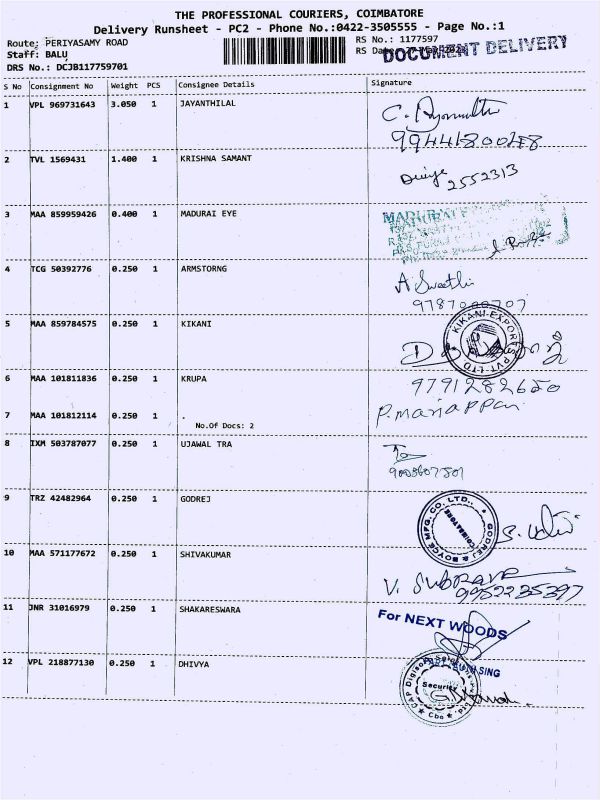 THE PROFESSIONAL COURIERS, COIMBATORE
Delivery Runsheet - PC2 - Phone No.:0422-3505555 - Page No.:1
Route: PERIYASAMY ROAD
RS No.: 1177597
Staff: BALU,
RS Date:
DOCUMENT DELIVERY
DRS No.: DCJB117759701
S No Consignment No Weight PCS Consignee Details Signature
1 VPL 969731643 3.050 1 JAYANTHILAL
9944180048
2 TVL 1569431 1.400 1 KRISHNA SAMANT
2552313
3 MAA 859959426 0.400 1 MADURAI EYE
4 TCG 50392776 0.250 1 ARMSTORNG
A Swethi
5 MAA 859784575 0.250 1 KIKANI
KIKANI EXPORT PVT LTD
6 MAA 101811836 0.250 1 KRUPA
9791282620
7 MAA 101812114 0.250 1 .
P.mariappan
No.Of Docs: 2
8 IXM 503787077 0.250 1 UJAWAL TRA
9 TRZ 42482964 0.250 1 GODREJ
GODREJ & BOYCE MFG. CO. LTD.,
COIMBATORE
10 MAA 571177672 0.250 1 SHIVAKUMAR
9952235397
11 JNR 31016979 0.250 1 SHAKARESWARA
For NEXT WOODS
12 VPL 218877130 0.250 1 DHIVYA
Security